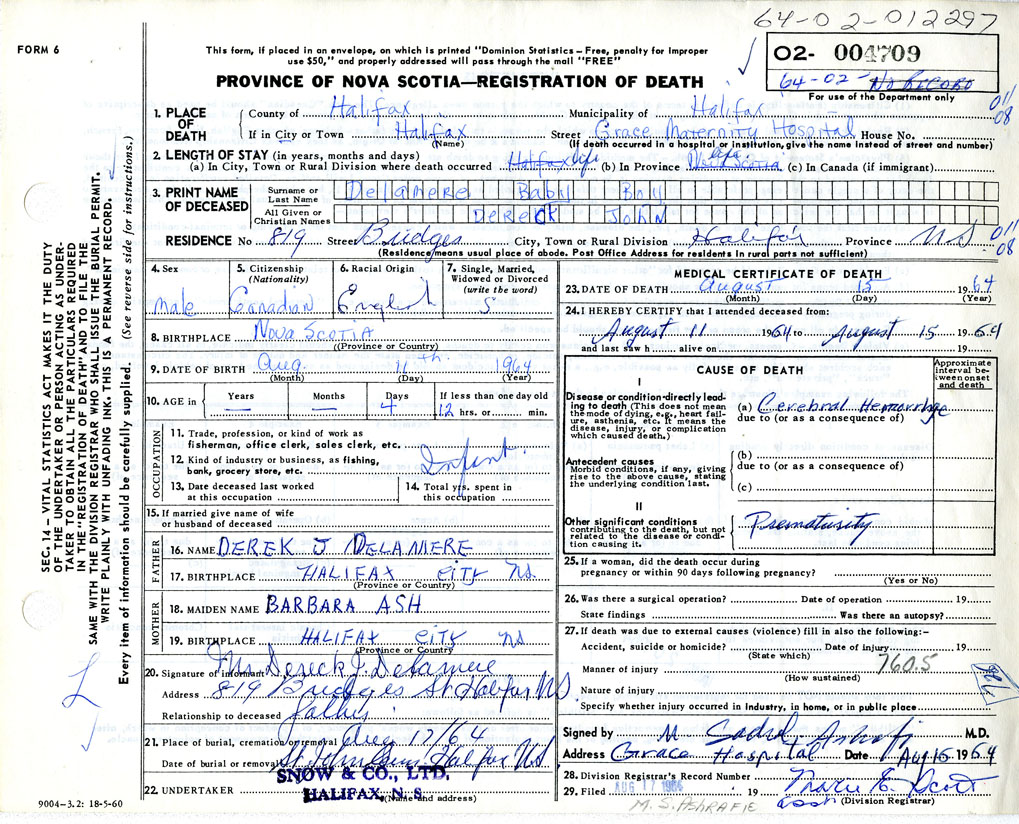 64-02-012297
FORM 6
This form, if placed in an envelope, on which is printed "Dominion Statistics – Free, penalty for improper
use $50," and properly addressed will pass through the mail "FREE"
02- 004709
64-02- No RECORD
For use of the Department only
PROVINCE OF NOVA SCOTIA—REGISTRATION OF DEATH
011
08
1. PLACE OF DEATH
County of Halifax Municipality of Halifax
If in City or Town Halifax Street Grace Maternity Hospital House No.
(Name) (If death occurred in a hospital or institution, give the name instead of street and number)
2. LENGTH OF STAY (in years, months and days)
(a) In City, Town or Rural Division where death occurred Halifax life (b) In Province Nova Scotia life (c) In Canada (if immigrant)
3. PRINT NAME OF DECEASED
Surname or Last Name Delamere Baby Boy
All Given or Christian Names DERECK JOHN
RESIDENCE No 819 Street Bridges City, Town or Rural Division Halifax Province NS
011
08
(Residence means usual place of abode. Post Office Address for residents in rural parts not sufficient)
4. Sex
male
5. Citizenship (Nationality)
Canadian
6. Racial Origin
English
7. Single, Married, Widowed or Divorced (write the word)
S
8. BIRTHPLACE Nova Scotia
(Province or Country)
9. DATE OF BIRTH Aug. 11th. 1964
(Month) (Day) (Year)
10. AGE in
Years Months Days If less than one day old
— — 4 12 hrs. or min.
OCCUPATION
11. Trade, profession, or kind of work as
fisherman, office clerk, sales clerk, etc.
12. Kind of industry or business, as fishing,
bank, grocery store, etc.
Infant.
13. Date deceased last worked
at this occupation
14. Total yrs. spent in
this occupation
15. If married give name of wife
or husband of deceased
FATHER
16. NAME DEREK J DELAMERE
17. BIRTHPLACE HALIFAX CITY NS.
(Province or Country)
MOTHER
18. MAIDEN NAME BARBARA ASH
19. BIRTHPLACE HALIFAX CITY NS
(Province or Country)
20. Signature of informant Mr. Dereck J. Delamere
Address 819 Bridges St Halifax NS
Relationship to deceased father
21. Place of burial, cremation or removal Aug 17/64
Date of burial or removal St Johns Halifax NS
SNOW & CO., LTD.
HALIFAX, N. S.
22. UNDERTAKER
(Name and address)
9004-3.2: 18-5-60
MEDICAL CERTIFICATE OF DEATH
23. DATE OF DEATH August 15 1964
(Month) (Day) (Year)
24. I HEREBY CERTIFY that I attended deceased from:
August 11 1964 to August 15 1964
and last saw h alive on 19
CAUSE OF DEATH
Approximate interval between onset and death
I
Disease or condition-directly leading to death (This does not mean the mode of dying, e.g., heart failure, asthenia, etc. It means the disease, injury, or complication which caused death.)
(a) Cerebral Hemorrhage
due to (or as a consequence of)
Antecedent causes
Morbid conditions, if any, giving rise to the above cause, stating the underlying condition last.
(b)
due to (or as a consequence of)
(c)
II
Other significant conditions
contributing to the death, but not related to the disease or condition causing it.
Prematurity
25. If a woman, did the death occur during
pregnancy or within 90 days following pregnancy?
(Yes or No)
26. Was there a surgical operation? Date of operation 19
State findings Was there an autopsy?
27. If death was due to external causes (violence) fill in also the following:–
Accident, suicide or homicide? Date of injury 19
(State which)
Manner of injury 760.5
(How sustained)
Nature of injury
Specify whether injury occurred in industry, in home, or in public place
Signed by M Sadul Ashrafi M.D.
Address Grace Hospital Date Aug 16 1964
28. Division Registrar's Record Number
29. Filed AUG 17 1964 19 Marie E. Scott
(Division Registrar)
M. S. ASHRAFIE
SEC. 14 – VITAL STATISTICS ACT MAKES IT THE DUTY
OF THE UNDERTAKER OR PERSON ACTING AS UNDER-
TAKER TO OBTAIN ALL THE PARTICULARS REQUIRED
IN THE "REGISTRATION OF DEATH" AND TO FILE THE
SAME WITH THE DIVISION REGISTRAR WHO SHALL ISSUE THE BURIAL PERMIT.
WRITE PLAINLY WITH UNFADING INK. THIS IS A PERMANENT RECORD.
Every item of information should be carefully supplied. (See reverse side for instructions.)